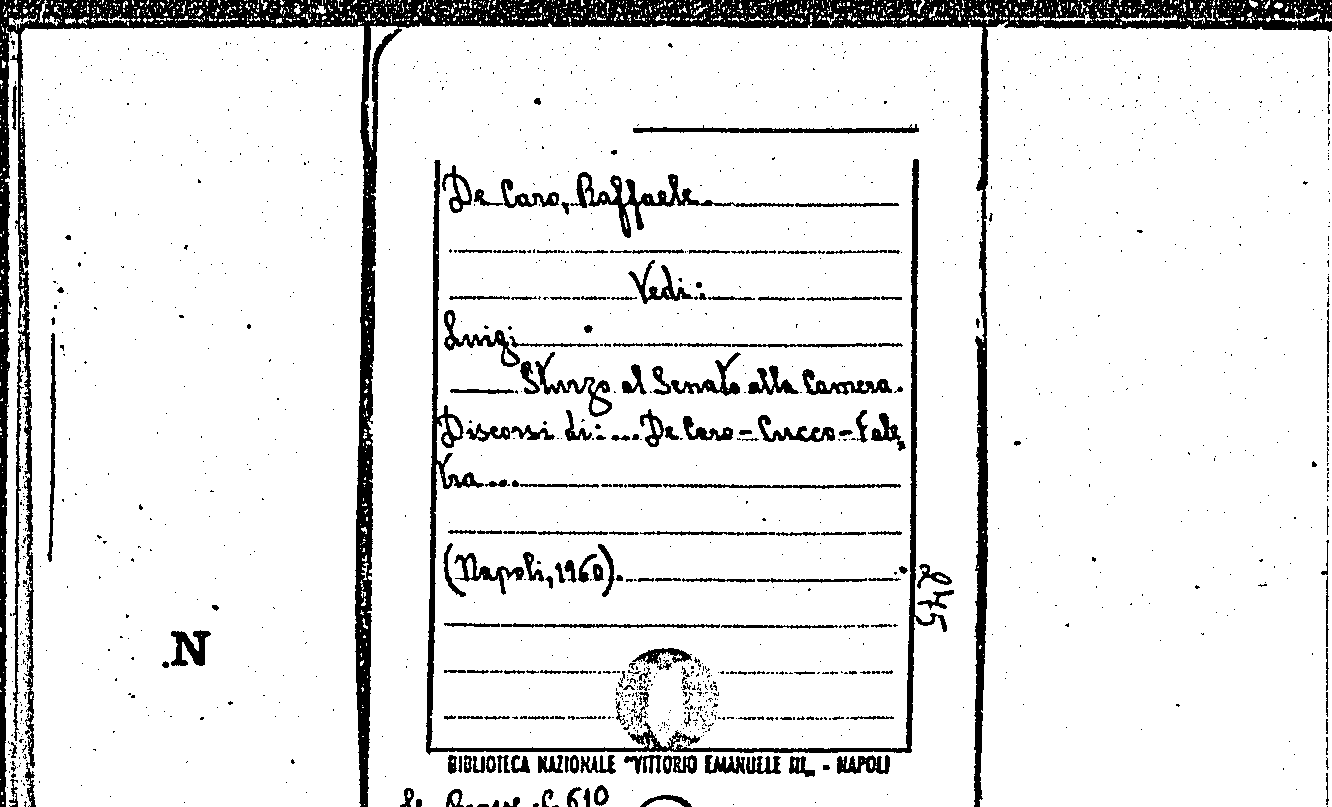 De Caro, Raffaele.
Vedi:
Luigi
Sturzo al Senato alla Camera.
Discorsi di: ... De Caro - Cucco - Fale,
tra ...
(Napoli, 1960).
245
.N
BIBLIOTECA NAZIONALE "VITTORIO EMANUELE III„ - NAPOLI
610